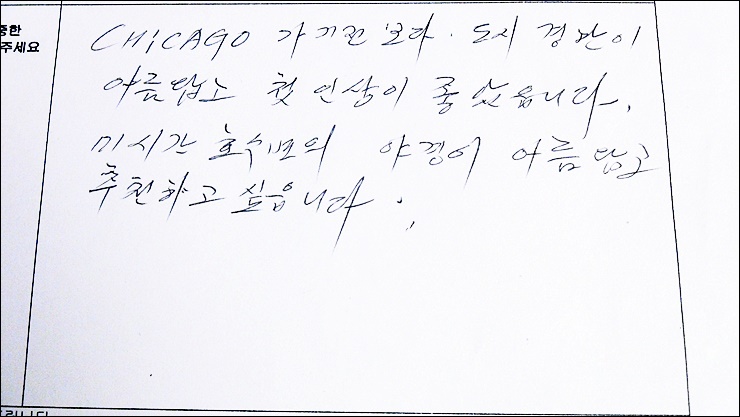 중한
주세요
CHICAGO 가기전 보다. 도시 경관이
아름답고 첫 인상이 좋았읍니다.
미시간 호수변의 야경이 아름답고
추천하고 싶읍니다.